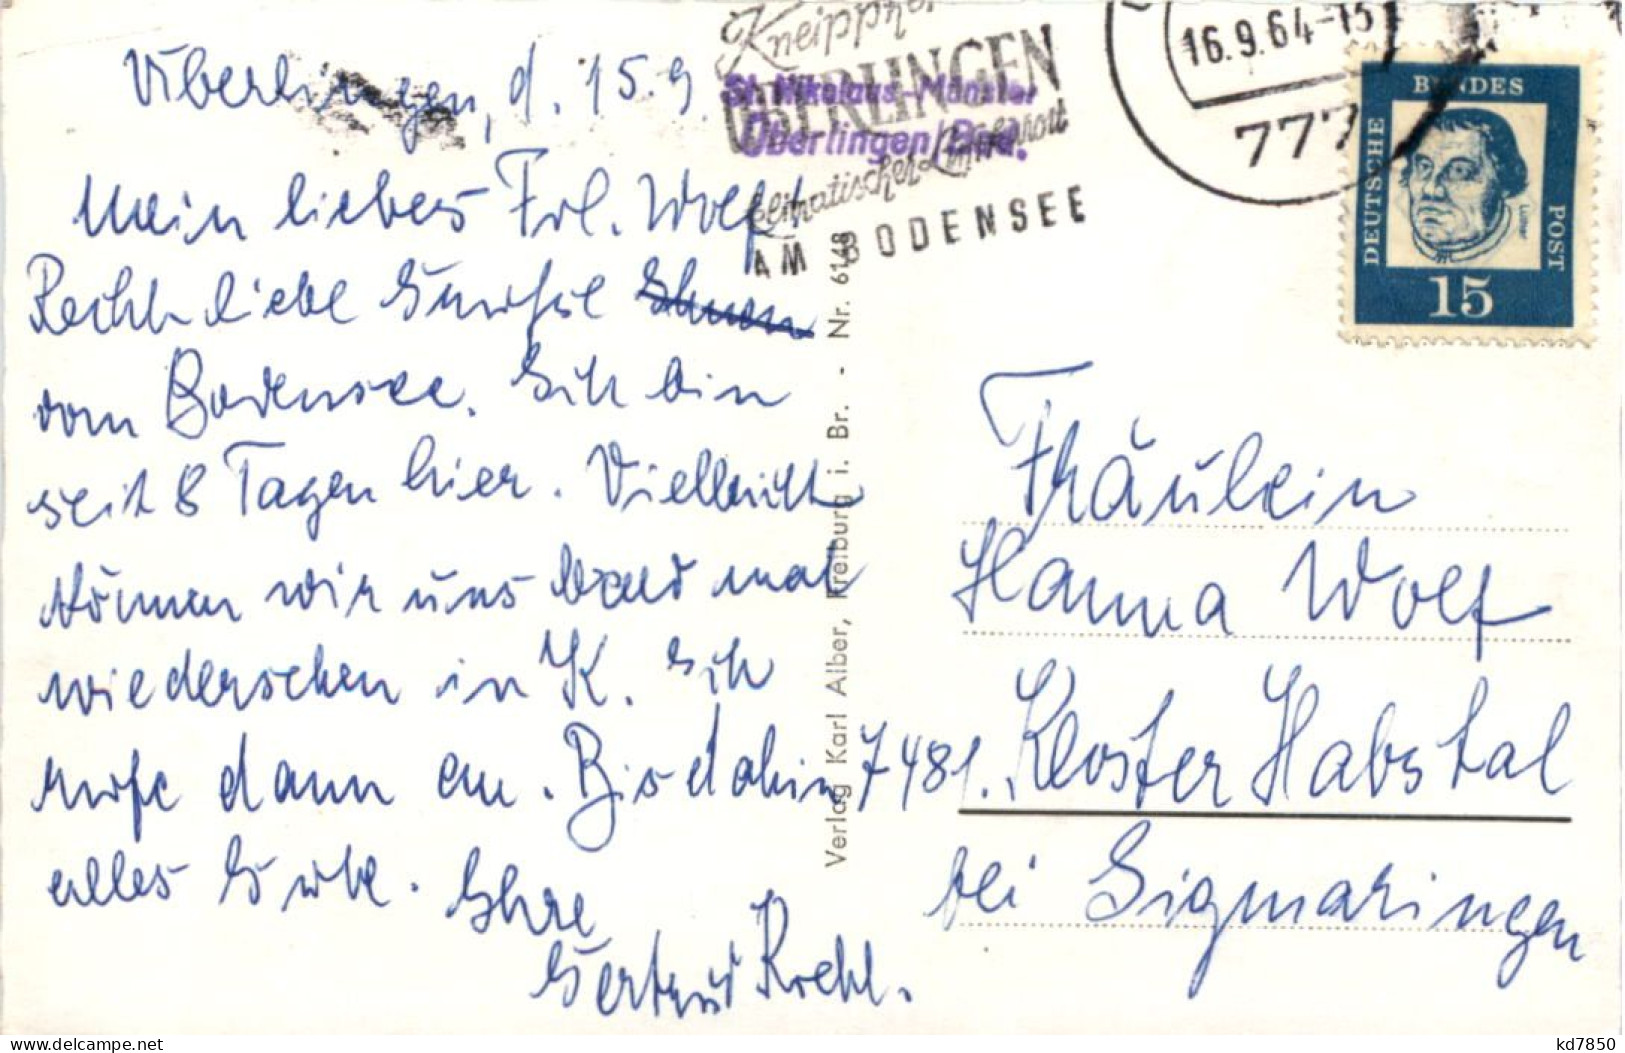 Überlingen, d. 15.9.
Mein liebes Frl. Wolf!
Recht liebe Grüße
vom Bodensee. Ich bin
seit 8 Tagen hier. Vielleicht
können wir uns bald mal
wiedersehen in K. Ich
rufe dann an. Bis dahin
alles Gute. Ihre
Gertrud Krehl.
Kneipp
ÜBERLINGEN
klimatischer Luftkurort
AM BODENSEE
St. Nikolaus-Münster
Überlingen/Bod.
16.9.64-15
777
DEUTSCHE
BUNDES
POST
Luther
15
Verlag Karl Alber, Freiburg i. Br. - Nr. 6148
Fräulein
Hanna Wolf
7481. Kloster Habstal
bei Sigmaringen
kd7850